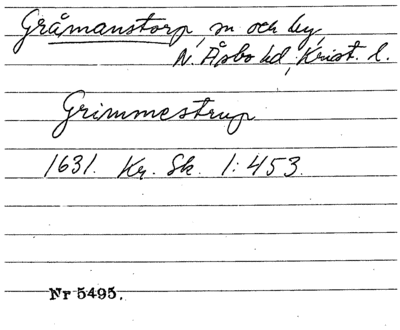 Gråmanstorp, sn och by,
N. Åsbo hd, Krist. l.
Grimmestrup
1631. Kr. Sk. 1:453.
Nr 5495.